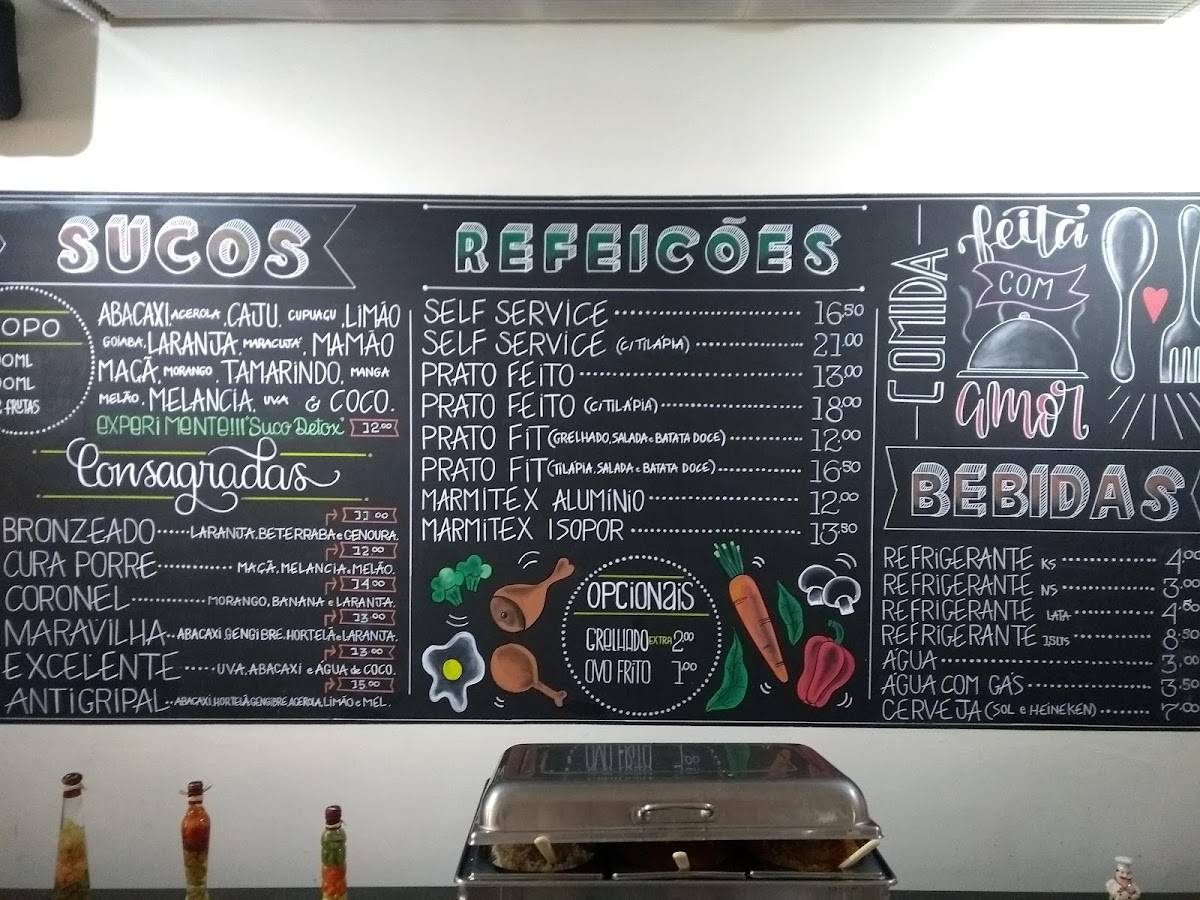 SUCOS
OPO
0ML
0ML
FRUTAS
ABACAXI ACEROLA, CAJU, CUPUAÇU, LIMÃO
GOIABA, LARANJA, MARACUJÁ, MAMÃO
MAÇÃ, MORANGO, TAMARINDO, MANGA
MELÃO, MELANCIA, UVA & COCO.
EXPERIMENTE!!! "Suco Detox" 12,00
Consagradas
11,00
BRONZEADO LARANJA, BETERRABA e CENOURA.
12,00
CURA PORRE MAÇÃ, MELANCIA, MELÃO.
14,00
CORONEL MORANGO, BANANA e LARANJA.
13,00
MARAVILHA ABACAXI, GENGIBRE, HORTELÃ e LARANJA.
13,00
EXCELENTE UVA, ABACAXI e ÁGUA de COCO.
15,00
ANTIGRIPAL ABACAXI, HORTELÃ, GENGIBRE, ACEROLA, LIMÃO e MEL.
REFEICÕES
SELF SERVICE 16,50
SELF SERVICE (C/TILÁPIA) 21,00
PRATO FEITO 13,00
PRATO FEITO (C/TILÁPIA) 18,00
PRATO FIT (GRELHADO, SALADA e BATATA DOCE) 12,00
PRATO FIT (TILÁPIA, SALADA e BATATA DOCE) 16,50
MARMITEX ALUMÍNIO 12,00
MARMITEX ISOPOR 13,50
OPCIONAIS
GRELHADO EXTRA 2,00
OVO FRITO 1,00
COMIDA
feita
COM
amor
BEBIDAS
REFRIGERANTE KS 4,00
REFRIGERANTE NS 3,00
REFRIGERANTE LATA 4,50
REFRIGERANTE 1,5LTS 8,50
ÁGUA 3,00
ÁGUA COM GÁS 3,50
CERVEJA (SOL e HEINEKEN) 7,00